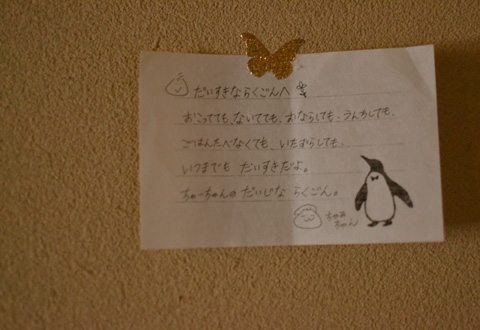 だいすきならくごんへ
おこってても、ないてても、おならしても、うんちしても、
ごはんたべなくても、いたずらしても、
いつまでも だいすきだよ。
ちゃーちゃんの だいじな らくごん。
ちゃあ
ちゃん